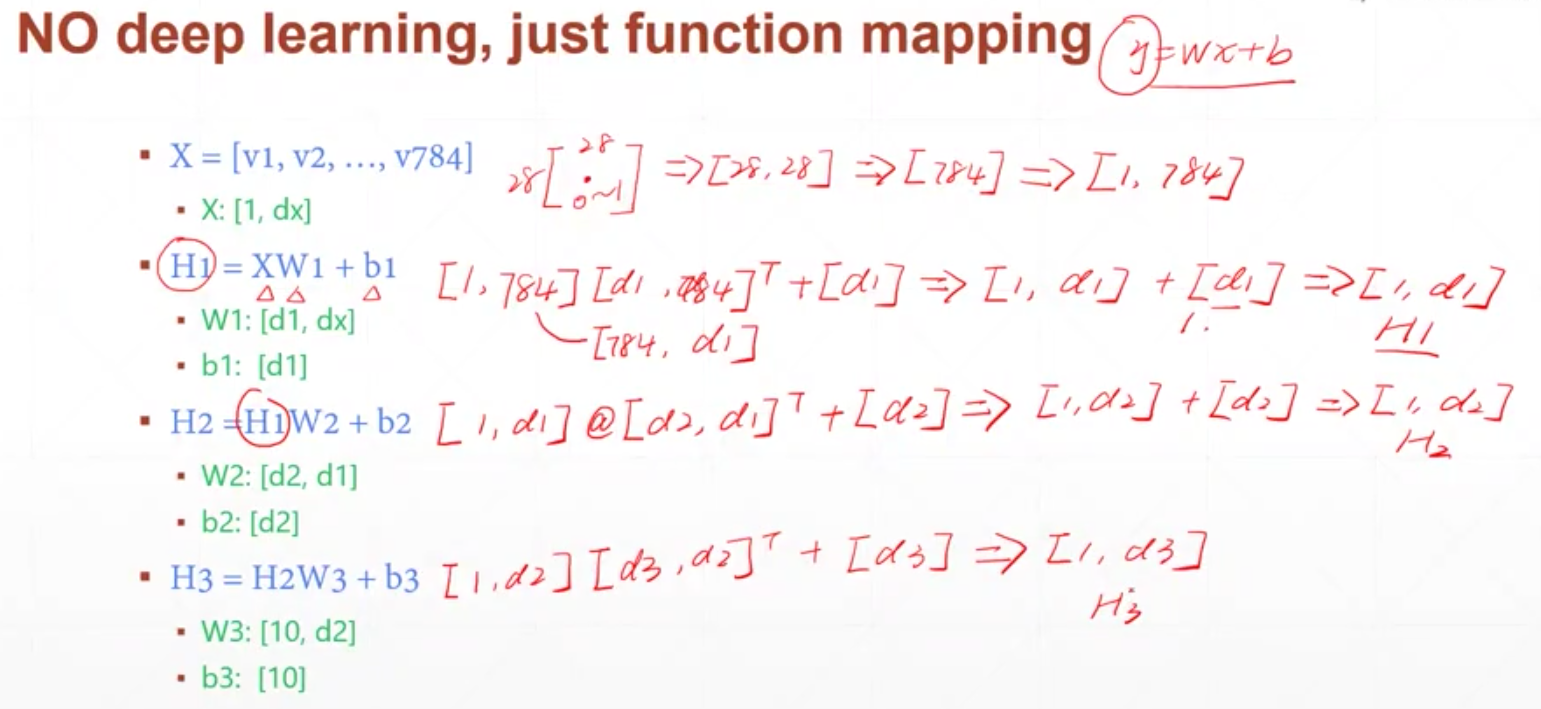 NO deep learning, just function mapping y=wx+b
▪ X = [v1, v2, …, v784] 28[28 0~1] ⇒[28,28] ⇒[784] ⇒ [1, 784]
▪ X: [1, dx]
▪ H1 = XW1 + b1 [1, 784][d1, 784]ᵀ+[d1] ⇒ [1, d1] + [d1] ⇒[1, d1]
▪ W1: [d1, dx] [784, d1] 1. H1
▪ b1: [d1]
▪ H2 =H1W2 + b2 [1, d1]@[d2, d1]ᵀ+[d2]⇒ [1,d2] +[d2] ⇒[1, d2]
H2
▪ W2: [d2, d1]
▪ b2: [d2]
▪ H3 = H2W3 + b3 [1,d2][d3,d2]ᵀ + [d3] ⇒ [1, d3]
H3
▪ W3: [10, d2]
▪ b3: [10]